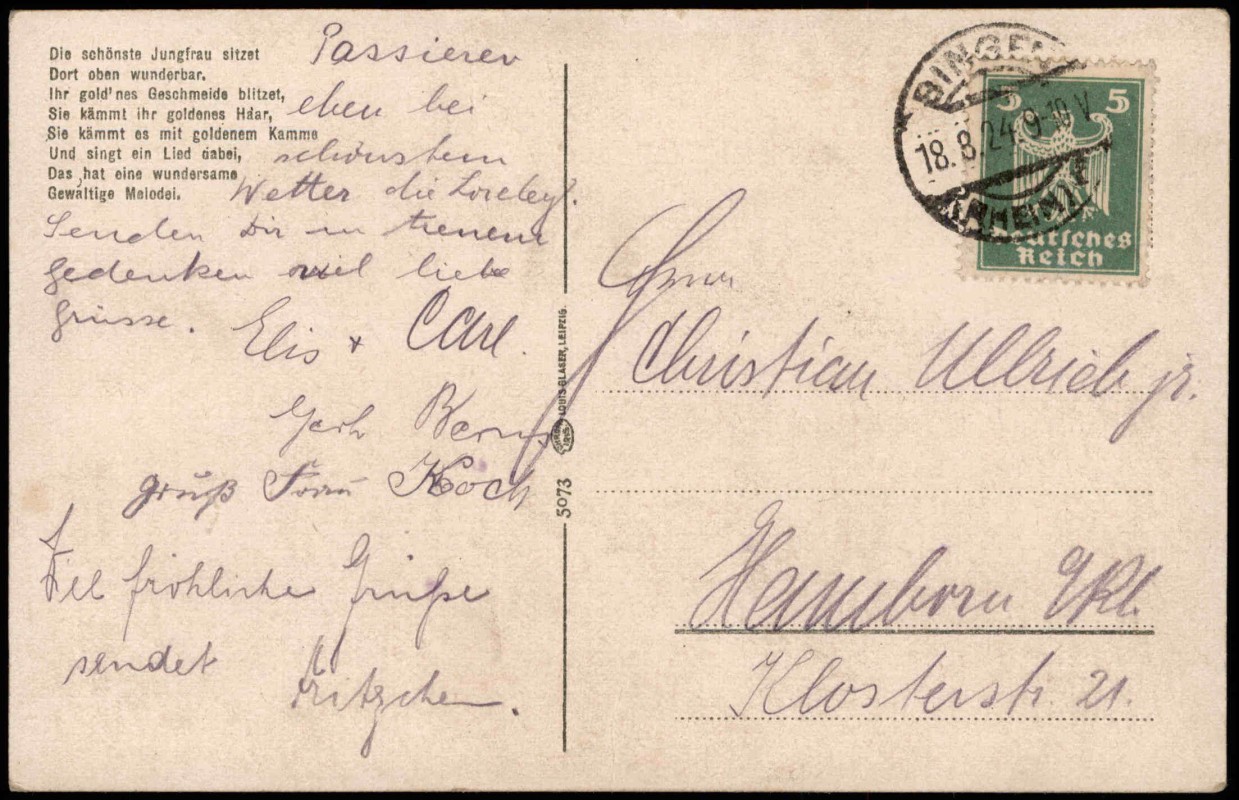 Die schönste Jungfrau sitzet
Dort oben wunderbar.
Ihr gold'nes Geschmeide blitzet,
Sie kämmt ihr goldenes Haar,
Sie kämmt es mit goldenem Kamme
Und singt ein Lied dabei,
Das hat eine wundersame
Gewaltige Melodei.
Passieren
eben bei
schönstem
Wetter die Loreley.
Senden Dir in treuem
gedenken viel liebe
Grüsse.
Elis + Carl.
Gerh Berns
gruß Frau Koch
Fiel fröhliche Grüße
sendet
Fritzchen.
LOUIS GLASER, LEIPZIG.
5073
BINGEN
18.8.24. 9-10 V
(RHEIN)
5 5
Deutsches
Reich
Herrn
Christian Ullrich jr.
Hamborn Rhl.
Klosterstr. 21.